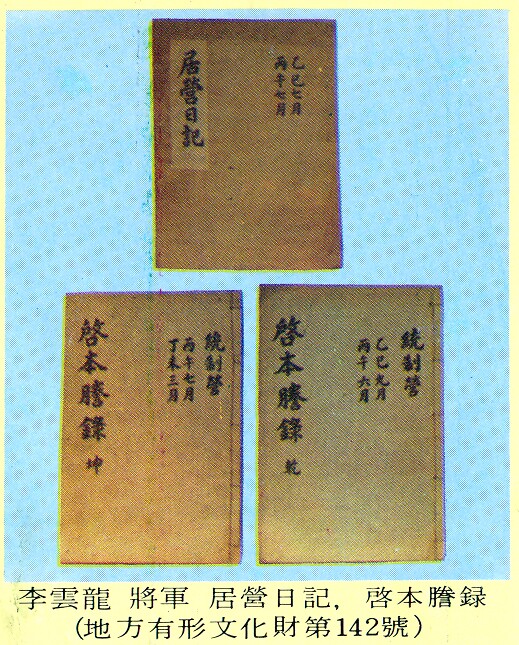 乙巳七月
丙午七月
居營日記
統制營
丙午七月
丁未三月
啓本謄錄 坤
統制營
乙巳九月
丙午六月
啓本謄錄 乾
李雲龍 將軍 居營日記, 啓本謄録
(地方有形文化財第142號)